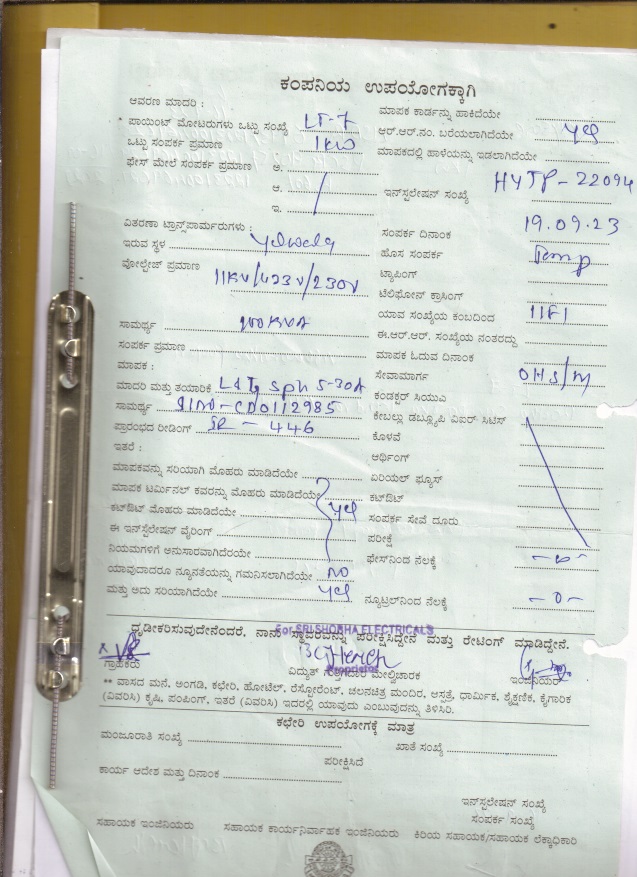 ಕಂಪನಿಯ ಉಪಯೋಗಕ್ಕಾಗಿ
ಆವರಣ ಮಾದರಿ :
ಮಾಪಕ ಕಾರ್ಡನ್ನು ಹಾಕಿದೆಯೇ
* ಪಾಯಿಂಟ್ ಮೋಟರುಗಳು ಒಟ್ಟು ಸಂಖ್ಯೆ LT-7
ಆರ್.ಆರ್.ನಂ. ಬರೆಯಲಾಗಿದೆಯೇ yes
ಒಟ್ಟು ಸಂಪರ್ಕ ಪ್ರಮಾಣ 1KW
ಮಾಪಕದಲ್ಲಿ ಹಾಳೆಯನ್ನು ಇಡಲಾಗಿದೆಯೇ
ಫೇಸ್ ಮೇಲೆ ಸಂಪರ್ಕ ಪ್ರಮಾಣ ಅ.
ಆ.
ಇನ್‌ಸ್ಟಲೇಷನ್ ಸಂಖ್ಯೆ HYTP-22094
ಇ.
ವಿತರಣಾ ಟ್ರಾನ್ಸ್‌ಪಾರ್ಮರುಗಳು :
ಸಂಪರ್ಕ ದಿನಾಂಕ 19.09.23
ಇರುವ ಸ್ಥಳ
ಹೊಸ ಸಂಪರ್ಕ Temp
ವೋಲ್ಟೇಜ್ ಪ್ರಮಾಣ 11KV/423V/230V
ಟ್ಯಾಪಿಂಗ್
ಟೆಲಿಫೋನ್ ಕ್ರಾಸಿಂಗ್
ಯಾವ ಸಂಖ್ಯೆಯ ಕಂಬದಿಂದ
ಸಾಮರ್ಥ್ಯ
ಈ.ಆರ್.ಆರ್. ಸಂಖ್ಯೆಯ ನಂತರದ್ದು
ಸಂಪರ್ಕ ಪ್ರಮಾಣ
ಮಾಪಕ ಓದುವ ದಿನಾಂಕ
ಮಾಪಕ :
ಸೇವಾಮಾರ್ಗ OHS/M
ಮಾದರಿ ಮತ್ತು ತಯಾರಿಕೆ L&Tg Sph 5-30A
ಕಂಡಕ್ಟರ್ ಸಿಯುಎ
ಸಾಮರ್ಥ್ಯ
ಕೇಬಲ್ಲು ಡಬ್ಲ್ಯೂಪಿ ವಿಐರ್ ಸಿಟಿಸ್
ಪ್ರಾರಂಭದ ರೀಡಿಂಗ್ SR - 446
ಕೊಳವೆ
ಇತರೆ :
ಆರ್ಥಿಂಗ್
ಮಾಪಕವನ್ನು ಸರಿಯಾಗಿ ಮೊಹರು ಮಾಡಿದೆಯೇ
ಏರಿಯಲ್ ಫ್ಯೂಸ್
ಮಾಪಕ ಟರ್ಮಿನಲ್ ಕವರನ್ನು ಮೊಹರು ಮಾಡಿದೆಯೇ
ಕಟ್‌ಔಟ್
ಕಟ್‌ಔಟ್ ಮೊಹರು ಮಾಡಿದೆಯೇ yes
ಸಂಪರ್ಕ ಸೇವೆ ದೂರು
ಈ ಇನ್‌ಸ್ಟಲೇಷನ್ ವೈರಿಂಗ್
ಪರೀಕ್ಷೆ
ನಿಯಮಗಳಿಗೆ ಅನುಸಾರವಾಗಿದೆರಯೇ
ಫೇಸ್‌ನಿಂದ ನೆಲಕ್ಕೆ -∞-
ಯಾವುದಾದರೂ ನ್ಯೂನತೆಯನ್ನು ಗಮನಿಸಲಾಗಿದೆಯೇ NO
ಮತ್ತು ಅದು ಸರಿಯಾಗಿದೆಯೇ yes
ನ್ಯೂಟ್ರಲ್‌ನಿಂದ ನೆಲಕ್ಕೆ -0-
For SRI SHOBHA ELECTRICALS
ಧೃಡೀಕರಿಸುವುದೇನೆಂದರೆ. ನಾನು ಸ್ಥಾವರವನ್ನು ಪರೀಕ್ಷಿಸಿದ್ದೇನೆ ಮತ್ತು ರೇಟಿಂಗ್ ಮಾಡಿದ್ದೇನೆ.
Proprietor
ಗ್ರಾಹಕರು ವಿದ್ಯುತ್ ಗುತ್ತಿಗೆದಾರ ಮೇಲ್ವಿಚಾರಕ ಇಂಜಿನಿಯರ್
** ವಾಸದ ಮನೆ, ಅಂಗಡಿ, ಕಛೇರಿ, ಹೋಟೆಲ್, ರೆಸ್ಟೋರೆಂಟ್, ಚಲನಚಿತ್ರ ಮಂದಿರ, ಆಸ್ಪತ್ರೆ, ಧಾರ್ಮಿಕ, ಶೈಕ್ಷಣಿಕ, ಕೈಗಾರಿಕೆ
(ವಿವರಿಸಿ) ಕೃಷಿ, ಪಂಪಿಂಗ್, ಇತರೆ (ವಿವರಿಸಿ) ಇದರಲ್ಲಿ ಯಾವುದು ಎಂಬುವುದನ್ನು ತಿಳಿಸಿರಿ.
ಕಛೇರಿ ಉಪಯೋಗಕ್ಕೆ ಮಾತ್ರ
ಮಂಜೂರಾತಿ ಸಂಖ್ಯೆ
ಖಾತೆ ಸಂಖ್ಯೆ
ಪರೀಕ್ಷಿಸಿದೆ
ಕಾರ್ಯ ಆದೇಶ ಮತ್ತು ದಿನಾಂಕ
ಇನ್‌ಸ್ಟಲೇಷನ್ ಸಂಖ್ಯೆ
ಸಂಪರ್ಕ ಸಂಖ್ಯೆ
ಸಹಾಯಕ ಇಂಜಿನಿಯರು ಸಹಾಯಕ ಕಾರ್ಯನಿರ್ವಾಹಕ ಇಂಜಿನಿಯರು ಕಿರಿಯ ಸಹಾಯಕ/ಸಹಾಯಕ ಲೆಕ್ಕಾಧಿಕಾರಿ